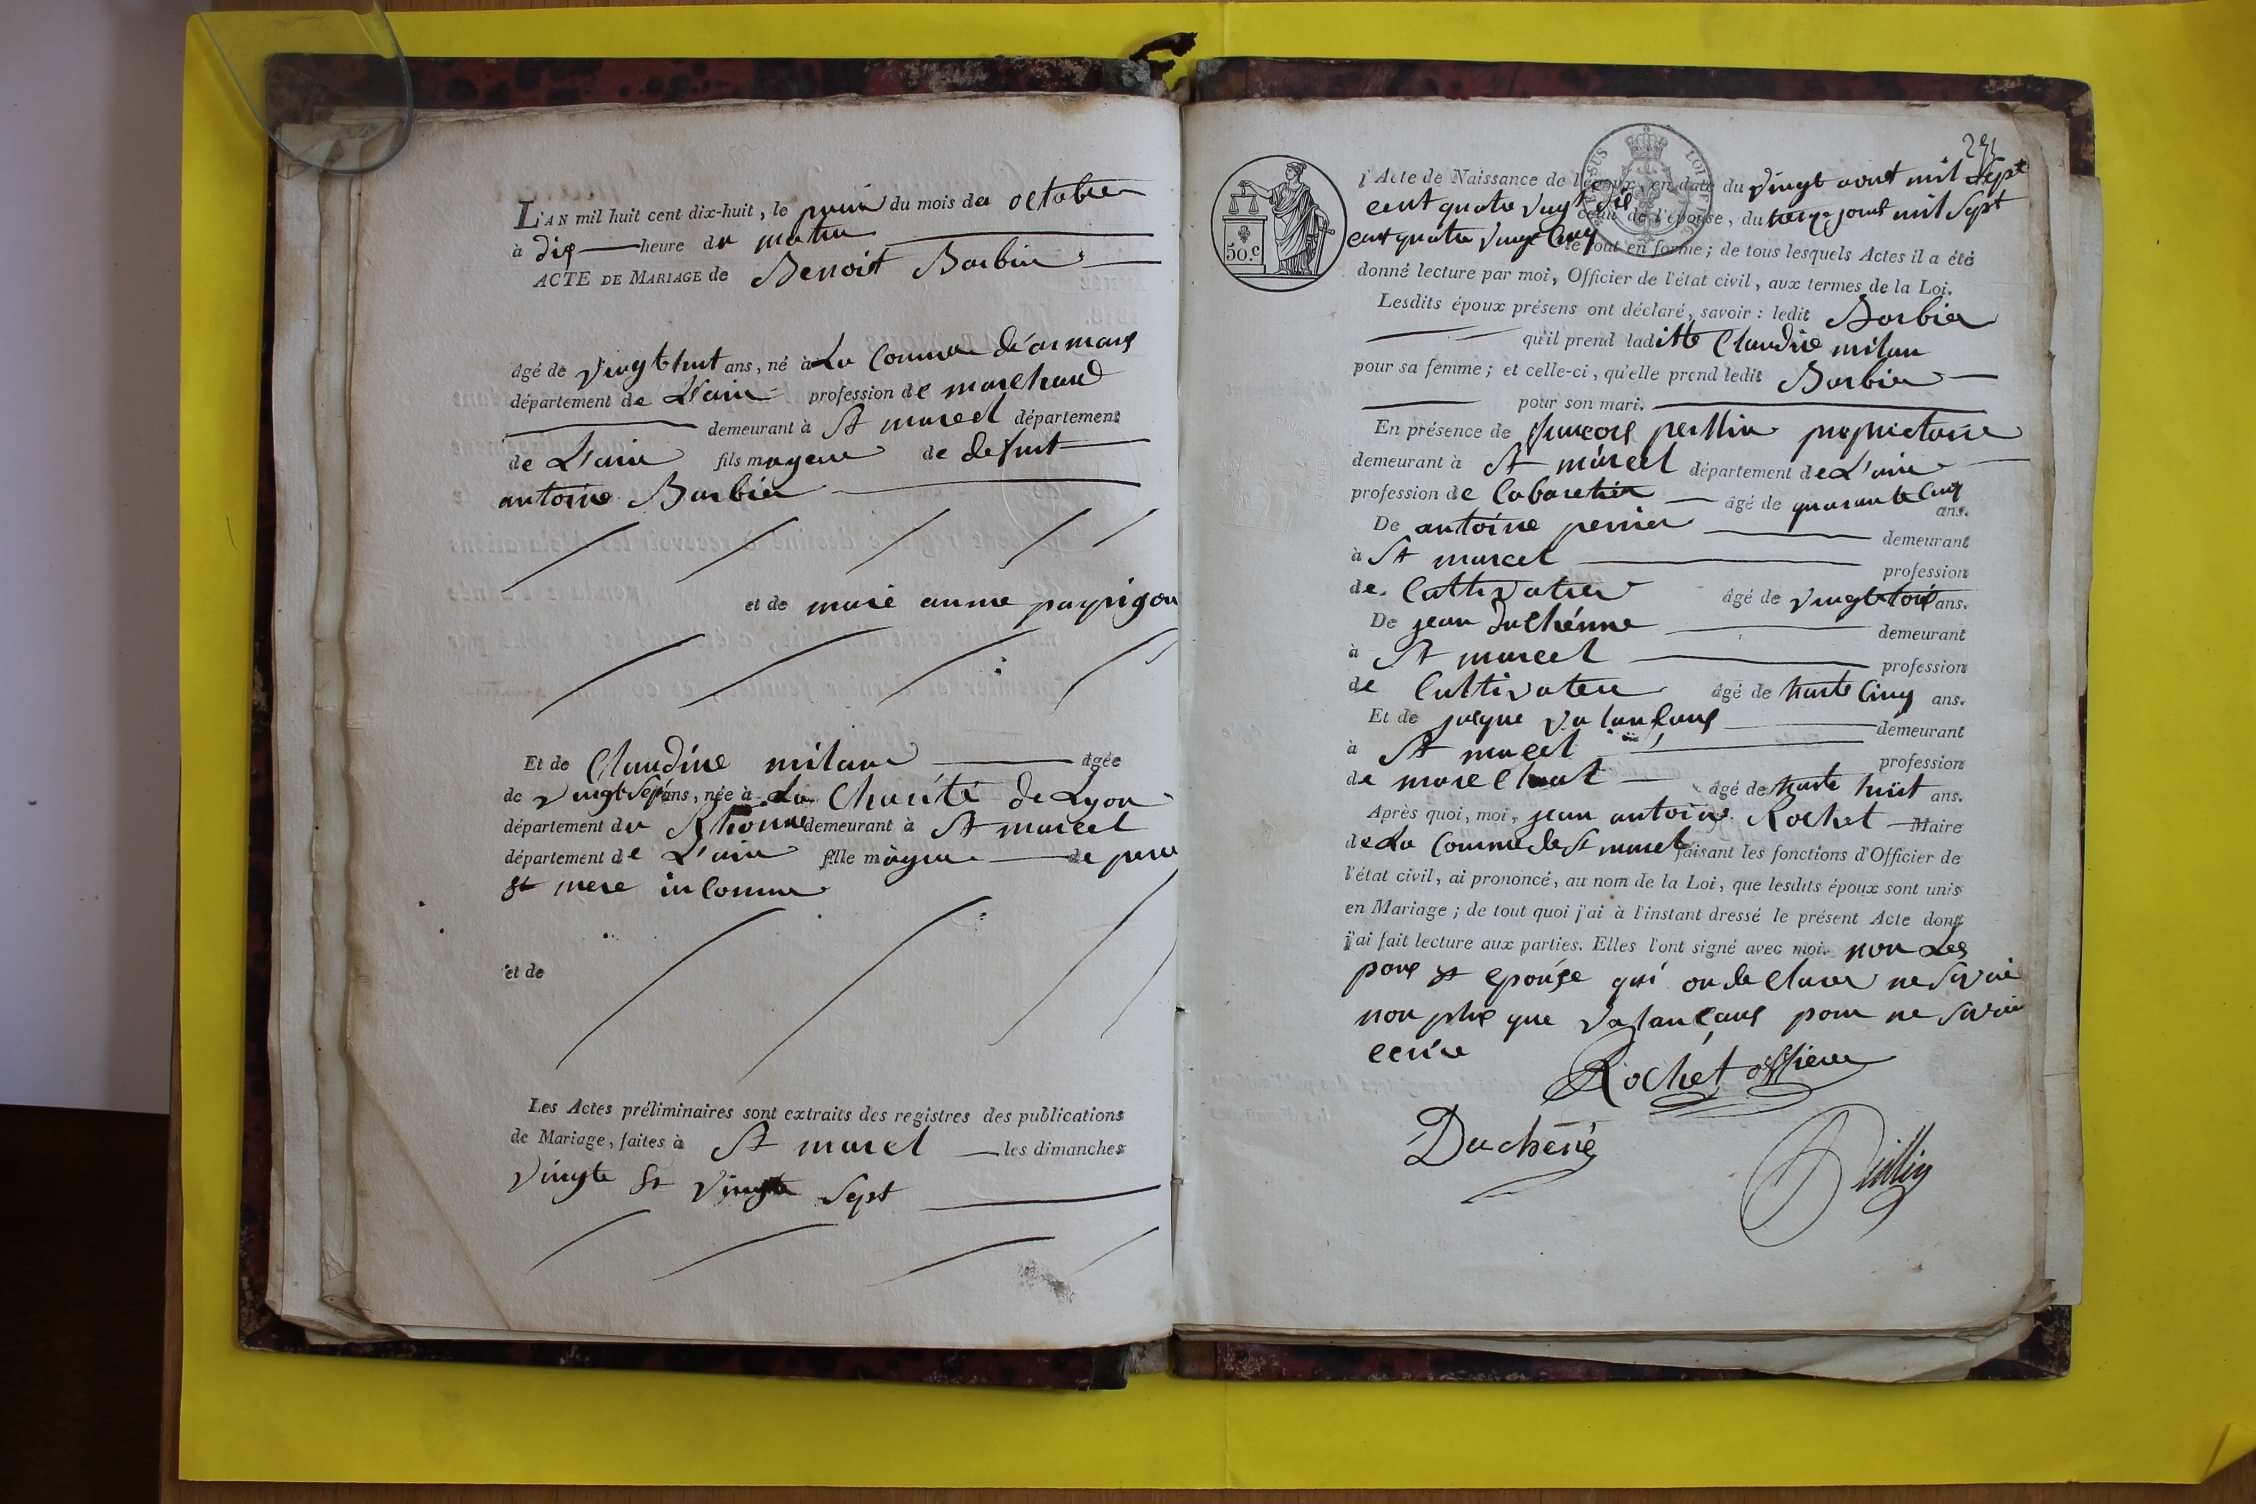 L'AN mil huit cent dix-huit, le du mois de octobre
à dix heure du matin
ACTE DE MARIAGE de Benoit Barbier
âgé de vingt huit ans, né à La Commune
département de L'ain profession de marchand
demeurant à St marcel département
de L'ain fils mageur de defunt
antoine Barbier
et de marie anne
Et de Claudine milan âgée
de vingt sept ans, née à La Charité de Lyon
département du Rhonne demeurant à St marcel
département de L'ain fille mageur de pere
et mere inconnu
et de
Les Actes préliminaires sont extraits des registres des publications
de Mariage, faites à St marcel les dimanches
vingte et vingte sept
l'Acte de Naissance de l'époux, en date du vingt aout mil sept
cent quatre vingt dix
celui de l'épouse, du mil sept
cent quatre vingt Cinq
le tout en forme; de tous lesquels Actes il a été
donné lecture par moi, Officier de l'état civil, aux termes de la Loi.
Lesdits époux présens ont déclaré, savoir: ledit Barbier
qu'il prend laditte Claudine milan
pour sa femme; et celle-ci, qu'elle prend ledit Barbier
pour son mari.
En présence de françois proprietaire
demeurant à St marcel département de L'ain
profession de Cabaretier âgé de quarante Cinq
ans.
De antoine perrier demeurant
à St marcel profession
de Cultivateur âgé de vingt trois ans.
De jean duchénne demeurant
à St marcel profession
de Cultivateur âgé de trante Cinq ans.
Et de jacque valançans demeurant
à St marcel profession
de âgé de trante huit ans.
Après quoi, moi, jean antoine Rochet Maire
de La Commune de St marcel faisant les fonctions d'Officier de
l'état civil, ai prononcé, au nom de la Loi, que lesdits époux sont unis
en Mariage; de tout quoi j'ai à l'instant dressé le présent Acte dont
j'ai fait lecture aux parties. Elles l'ont signé avec moi. non Les
epouse qui on declarer ne
non plus que valançans pour ne savoir
ecrire
Rochet officier
Duchêne
50.c